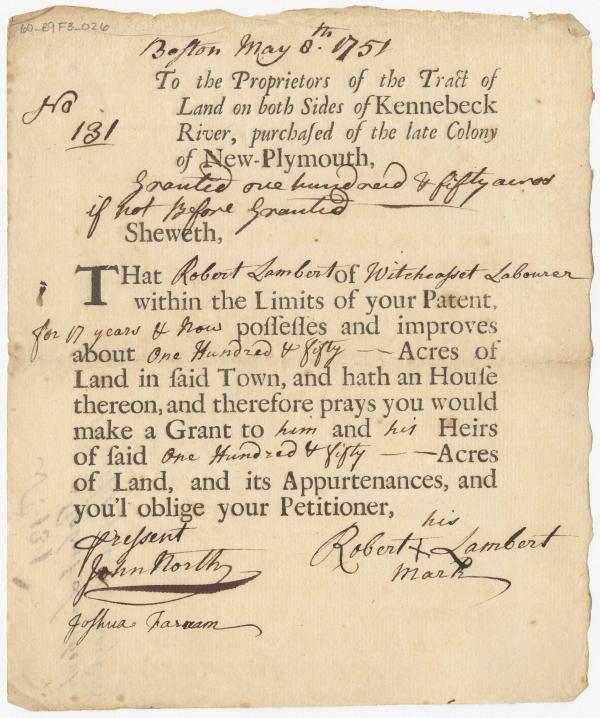 60-89F3-026
Boston May 8th. 1751
To the Proprietors of the Tract of
No
131
Land on both Sides of Kennebeck
River, purchaſed of the late Colony
of New-Plymouth,
Granted one hundred & fifty acres
if not Before Granted
Sheweth,
THat Robert Lambert of Witcheasset Labourer
within the Limits of your Patent,
for 17 years & Now poſſeſſes and improves
about One Hundred & fifty — Acres of
Land in ſaid Town, and hath an Houſe
thereon, and therefore prays you would
make a Grant to him and his Heirs
of ſaid One Hundred & fifty — — Acres
of Land, and its Appurtenances, and
you'l oblige your Petitioner,
pressent
his
John North
Robert X Lambert
mark
Joshua Farnam